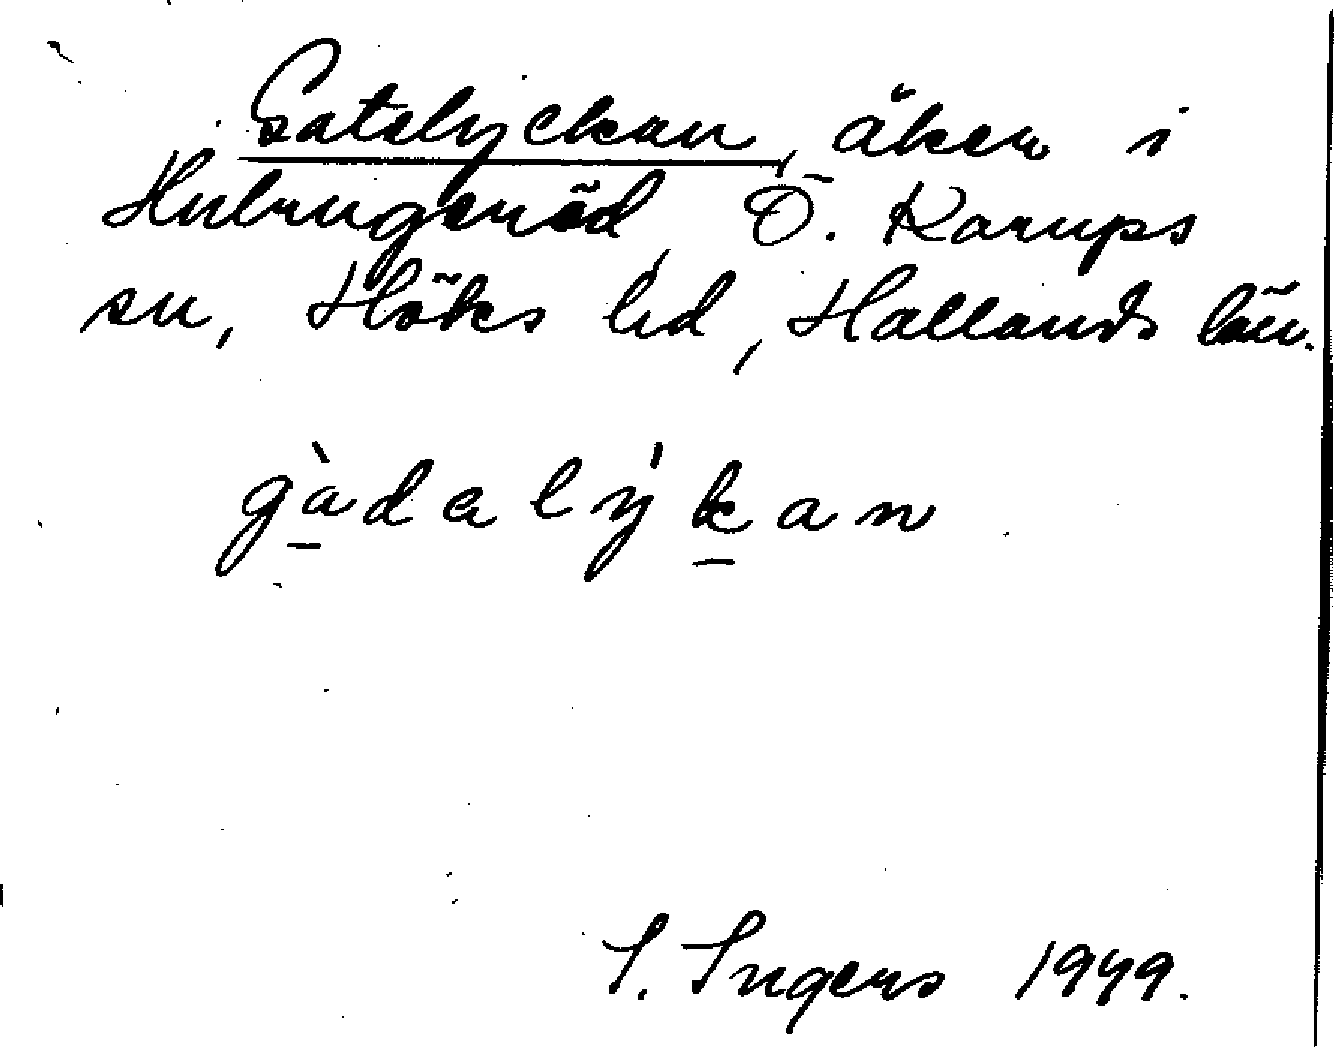 Gatelyckan, åker i
Hulrugeröd, Ö. Karups
sn, Höks hd, Hallands län.
gàdalýkan
I. Ingers 1949.